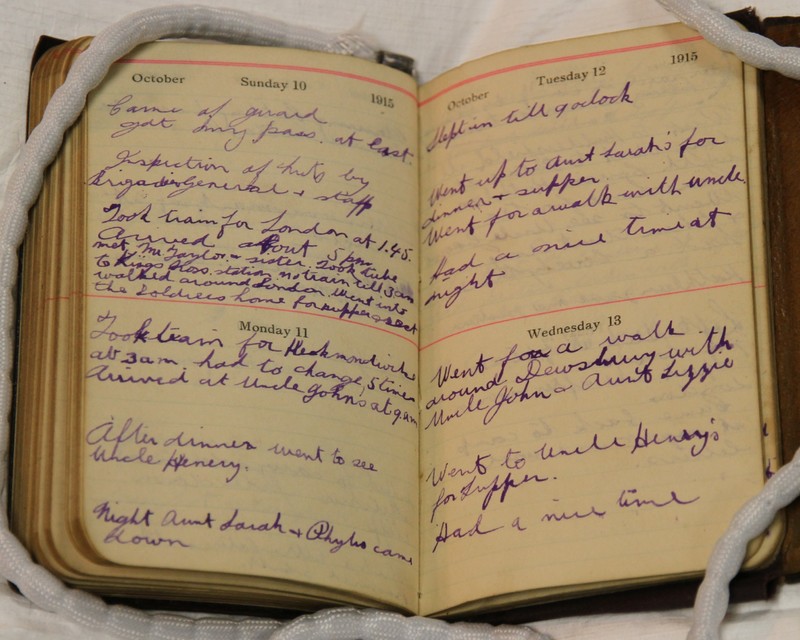 October Sunday 10 1915
Came of guard
got my pass. at last.
Inspection of huts by
Brigadier General + staff
Took train for London at 1.45.
Arrived about 5 pm
met Mr Taylor + sister. Took tube
to Kings Cross station no train till 3 am
walked around London went into
the Soldiers home for supper + rest
Monday 11
Took train for Heckmondwicke
at 3 am. had to change, 5 times
Arrived at Uncle Johns at 9 am
After dinner went to see
Uncle Henery.
Night Aunt Sarah + Phylis came
down
October Tuesday 12 1915
Slept in till 9 oclock
Went up to Aunt Sarah's for
dinner + supper
Went for a walk with uncle.
Had a nice time at
night
Wednesday 13
Went for a walk
around Dewsbury with
Uncle John + Aunt Lizzie
Went to Uncle Henery's
for Supper.
Had a nice time